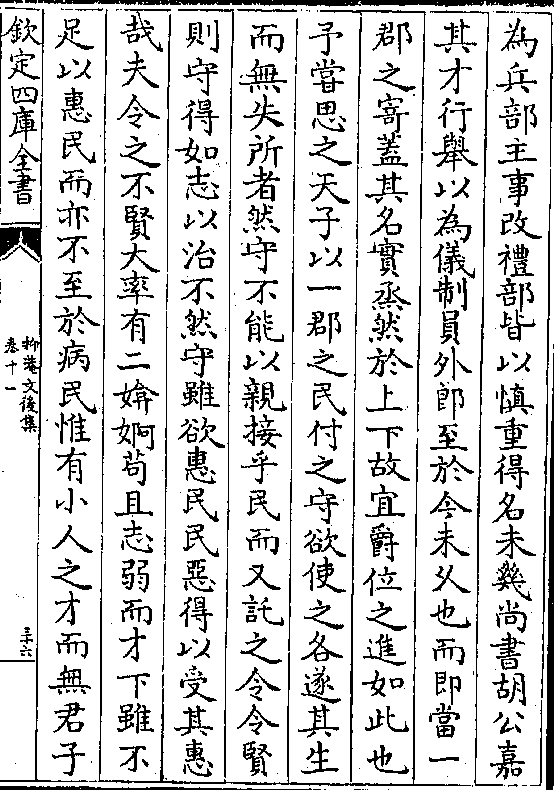 為兵部主事改禮部皆以慎重得名未㡬尚書胡公嘉
其才行舉以為儀制員外郎至於今未乆也而即當一
郡之寄蓋其名實烝然於上下故宜爵位之進如此也
予嘗思之天子以一郡之民付之守欲使之各遂其生
而無失所者然守不能以親接乎民而又託之令令賢
則守得如志以治不然守雖欲惠民民惡得以受其惠
哉夫令之不賢大率有二媕婀苟且志弱而才下雖不
足以惠民而亦不至於病民惟有小人之才而無君子
欽定四庫全書
抑菴文後集
卷十一
三十六